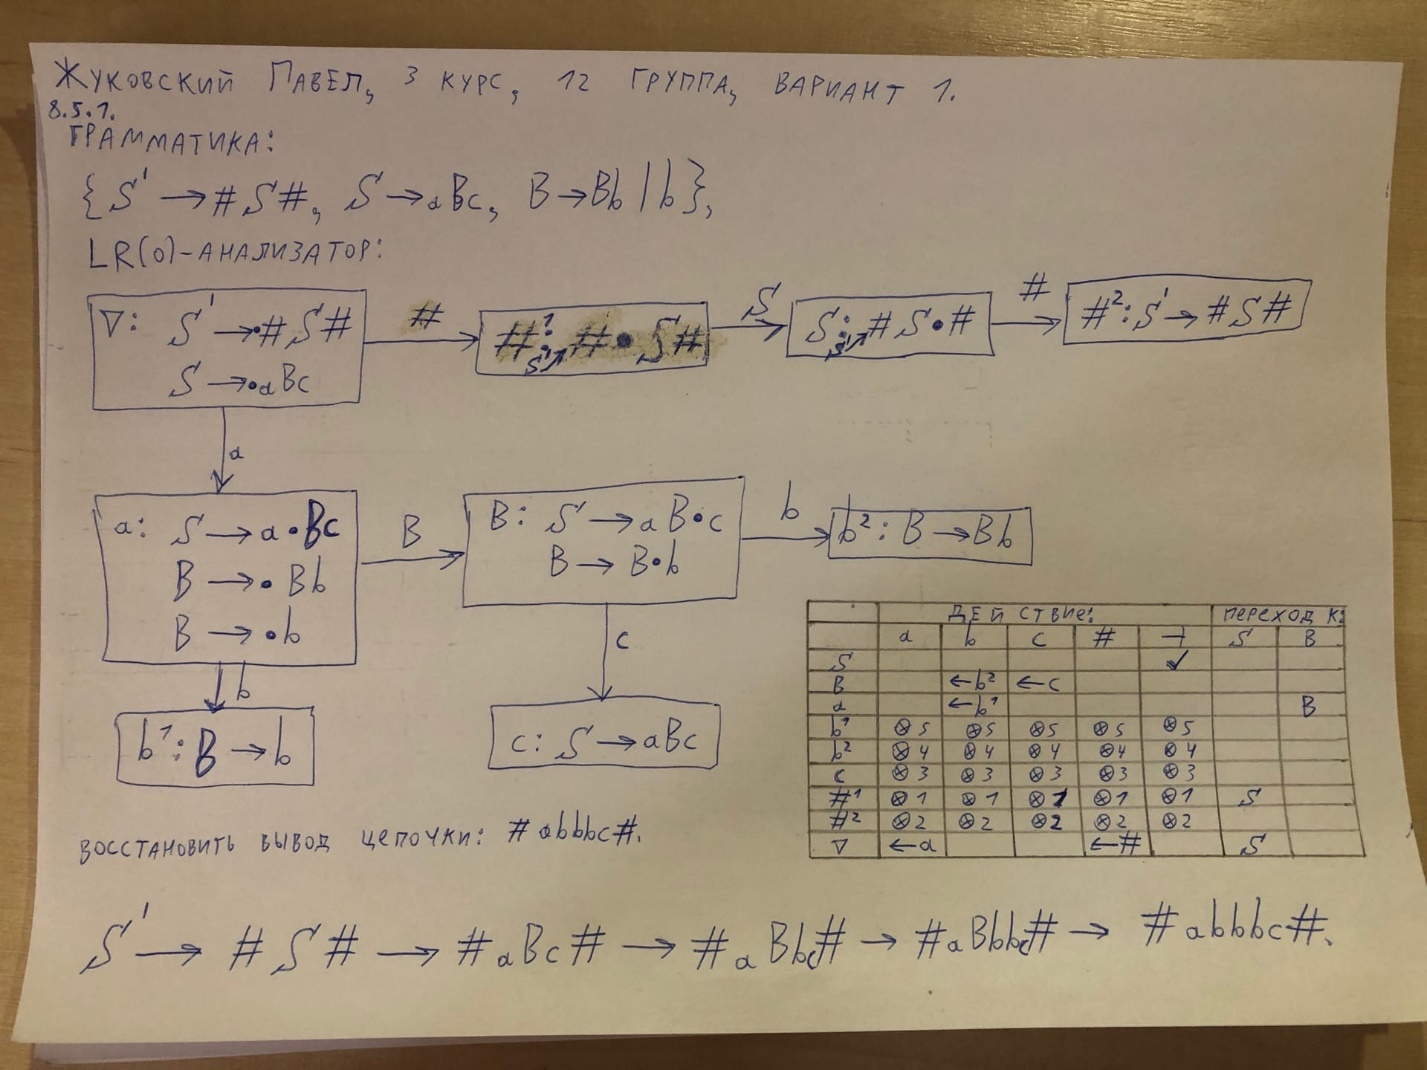 Жуковский Павел, 3 курс, 12 группа, вариант 1.
8.5.1.
Грамматика:
{S' → #S#, S → aBc, B → Bb | b},
LR(0)-анализатор:
∇: S' → •#S#
S → •aBc
#
#¹: S' → #•S#
S
S: S' → #S•#
#
#²: S' → #S#
a
a: S → a•Bc
B → •Bb
B → •b
B
B: S → aB•c
B → B•b
b
b²: B → Bb
b
c
b¹: B → b
c: S → aBc
действие: переход к:
a b c # ⊣ S B
S ✓
B ←b² ←c
a ←b¹ B
b¹ ⊗5 ⊗5 ⊗5 ⊗5 ⊗5
b² ⊗4 ⊗4 ⊗4 ⊗4 ⊗4
c ⊗3 ⊗3 ⊗3 ⊗3 ⊗3
#¹ ⊗1 ⊗1 ⊗1 ⊗1 ⊗1 S
#² ⊗2 ⊗2 ⊗2 ⊗2 ⊗2
∇ ←a ←# S
Восстановить вывод цепочки: #abbbc#.
S' → #S# → #aBc# → #aBbc# → #aBbbc# → #abbbc#.